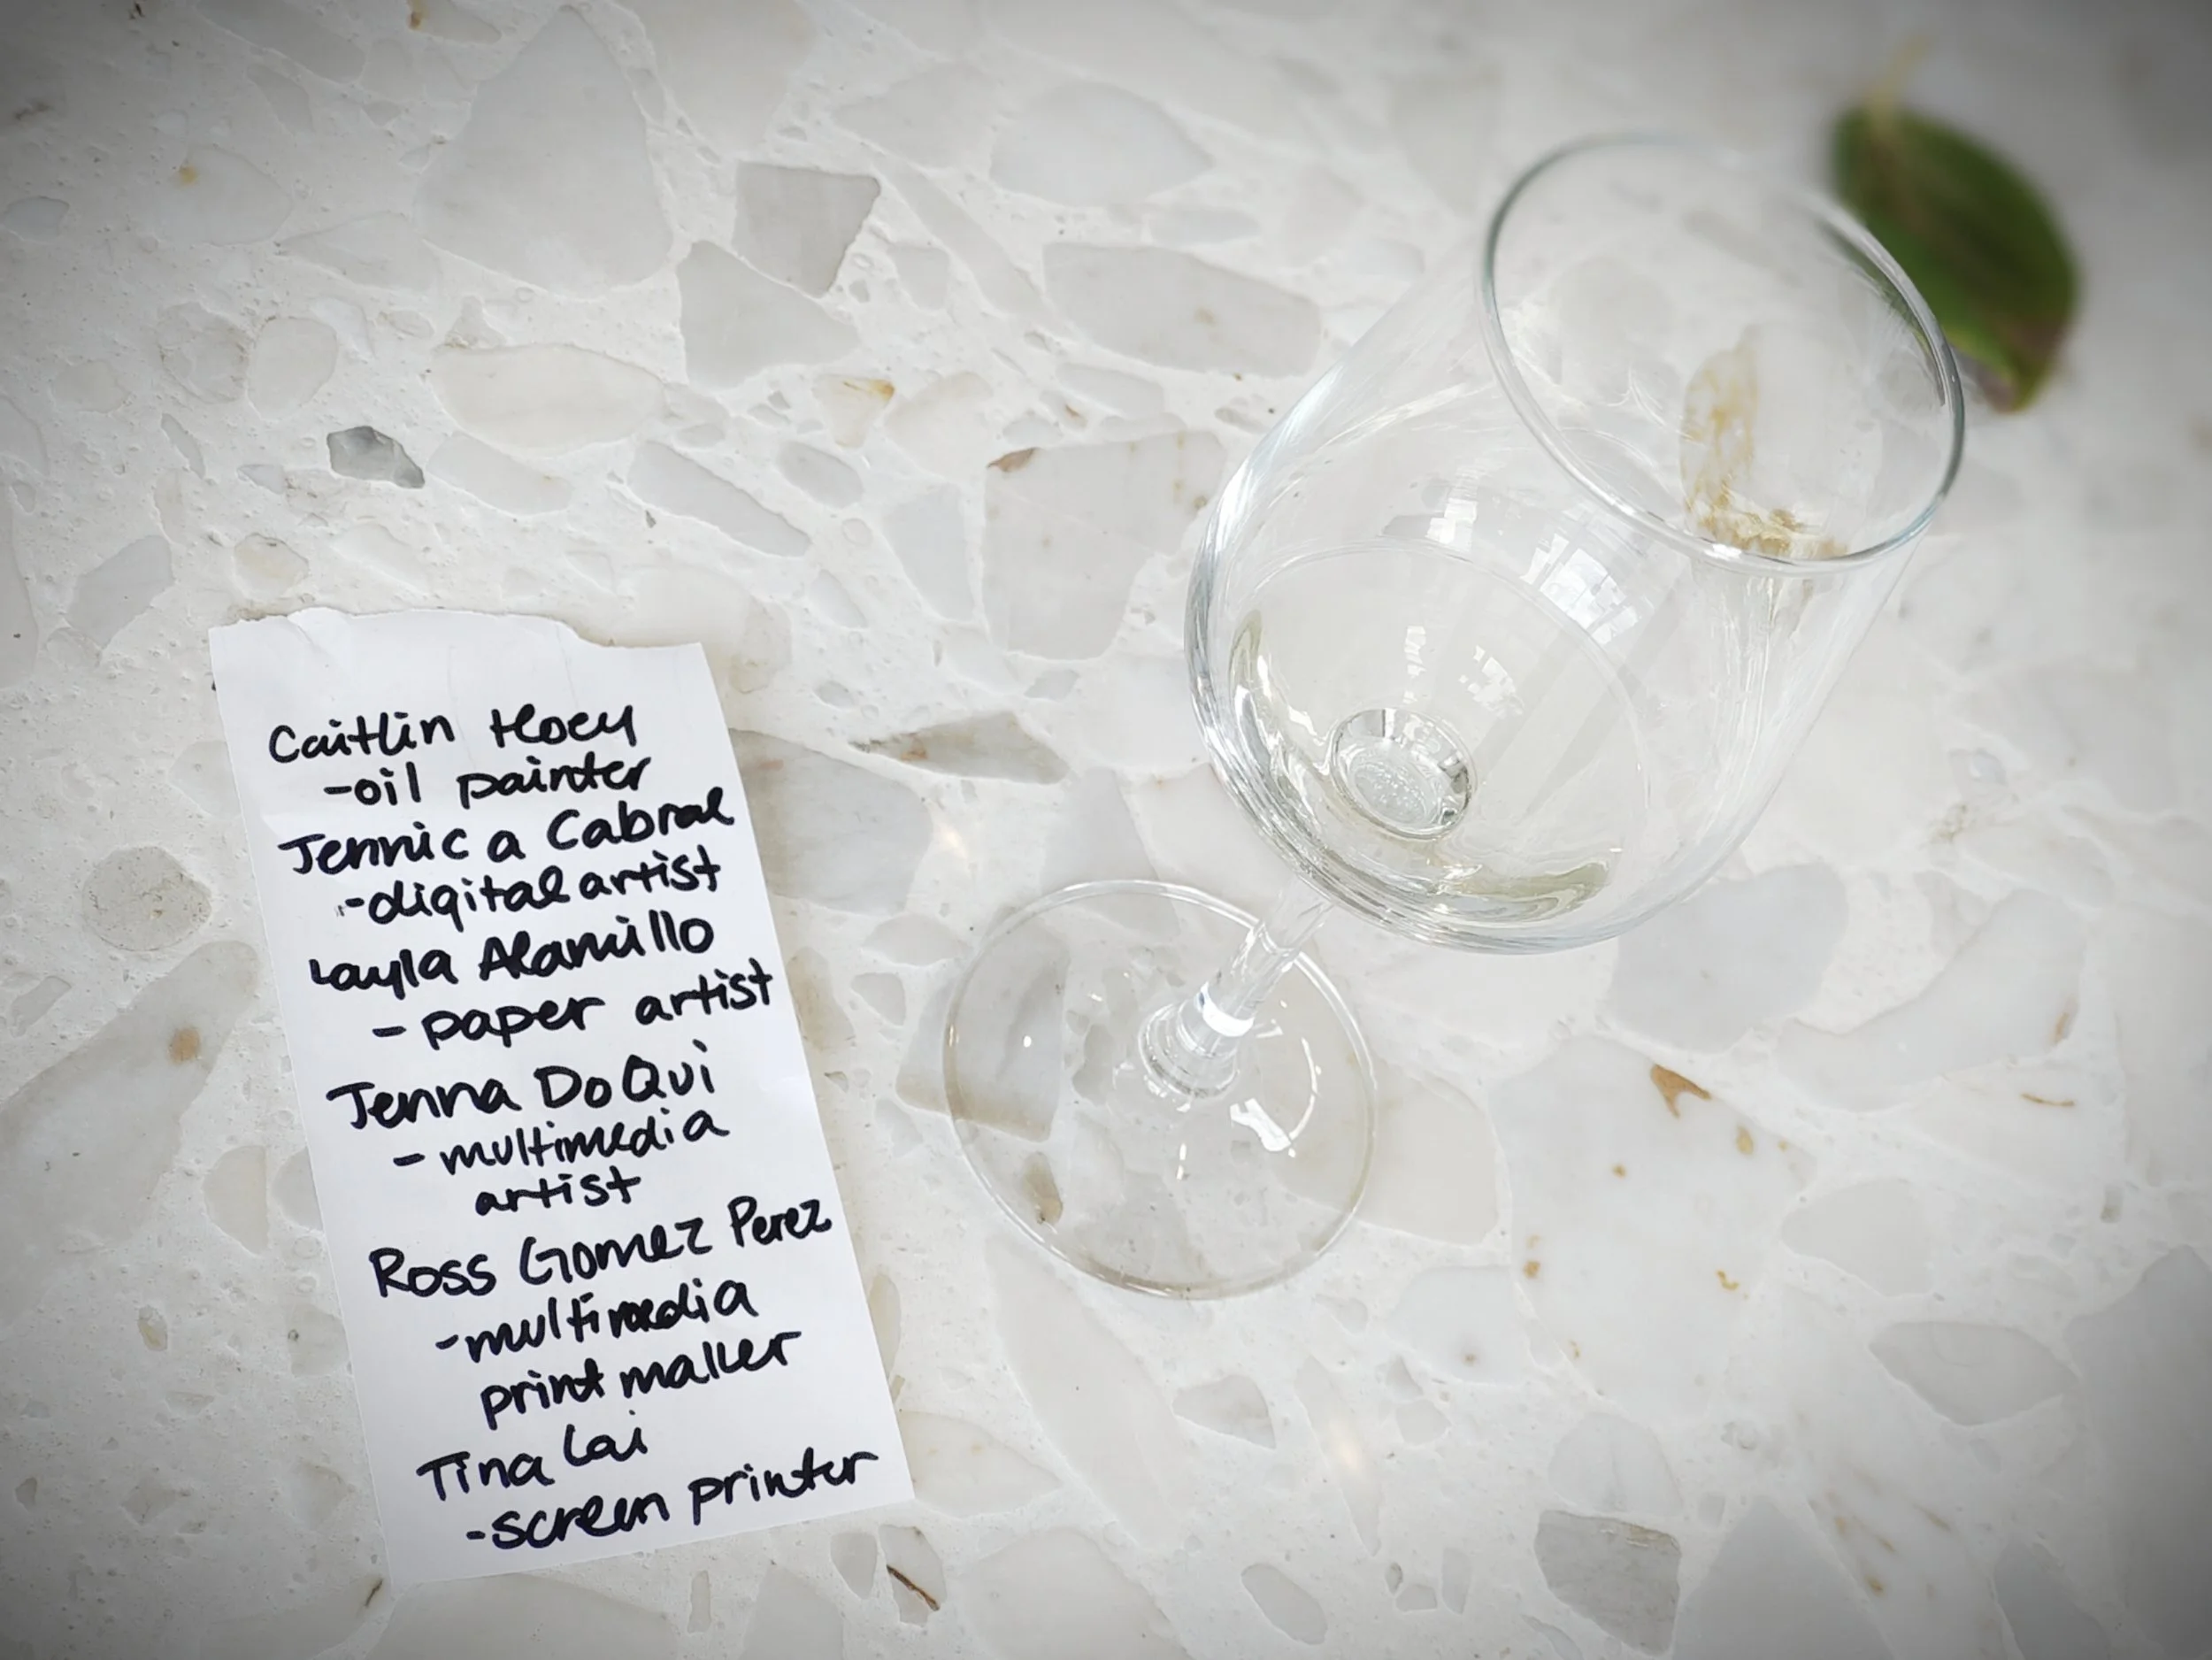 Caitlin Hoey
-oil painter
Jennic a Cabral
-digital artist
Layla Alamillo
- paper artist
Jenna DoQui
- multimedia
artist
Ross Gomez Perez
-multimedia
print maker
Tina Lai
-screen printer